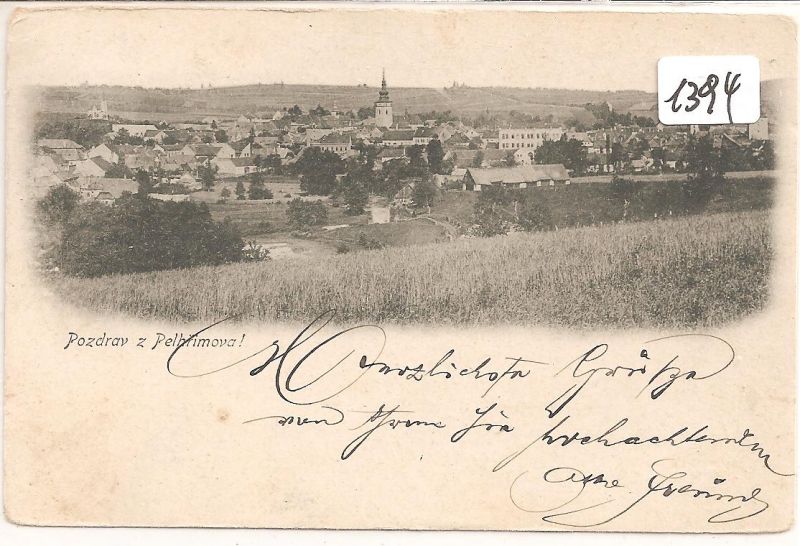 1394
Pozdrav z Pelhřimova!
Herzlichste Grüße
von Ihrem Sie hochachtenden
Freund